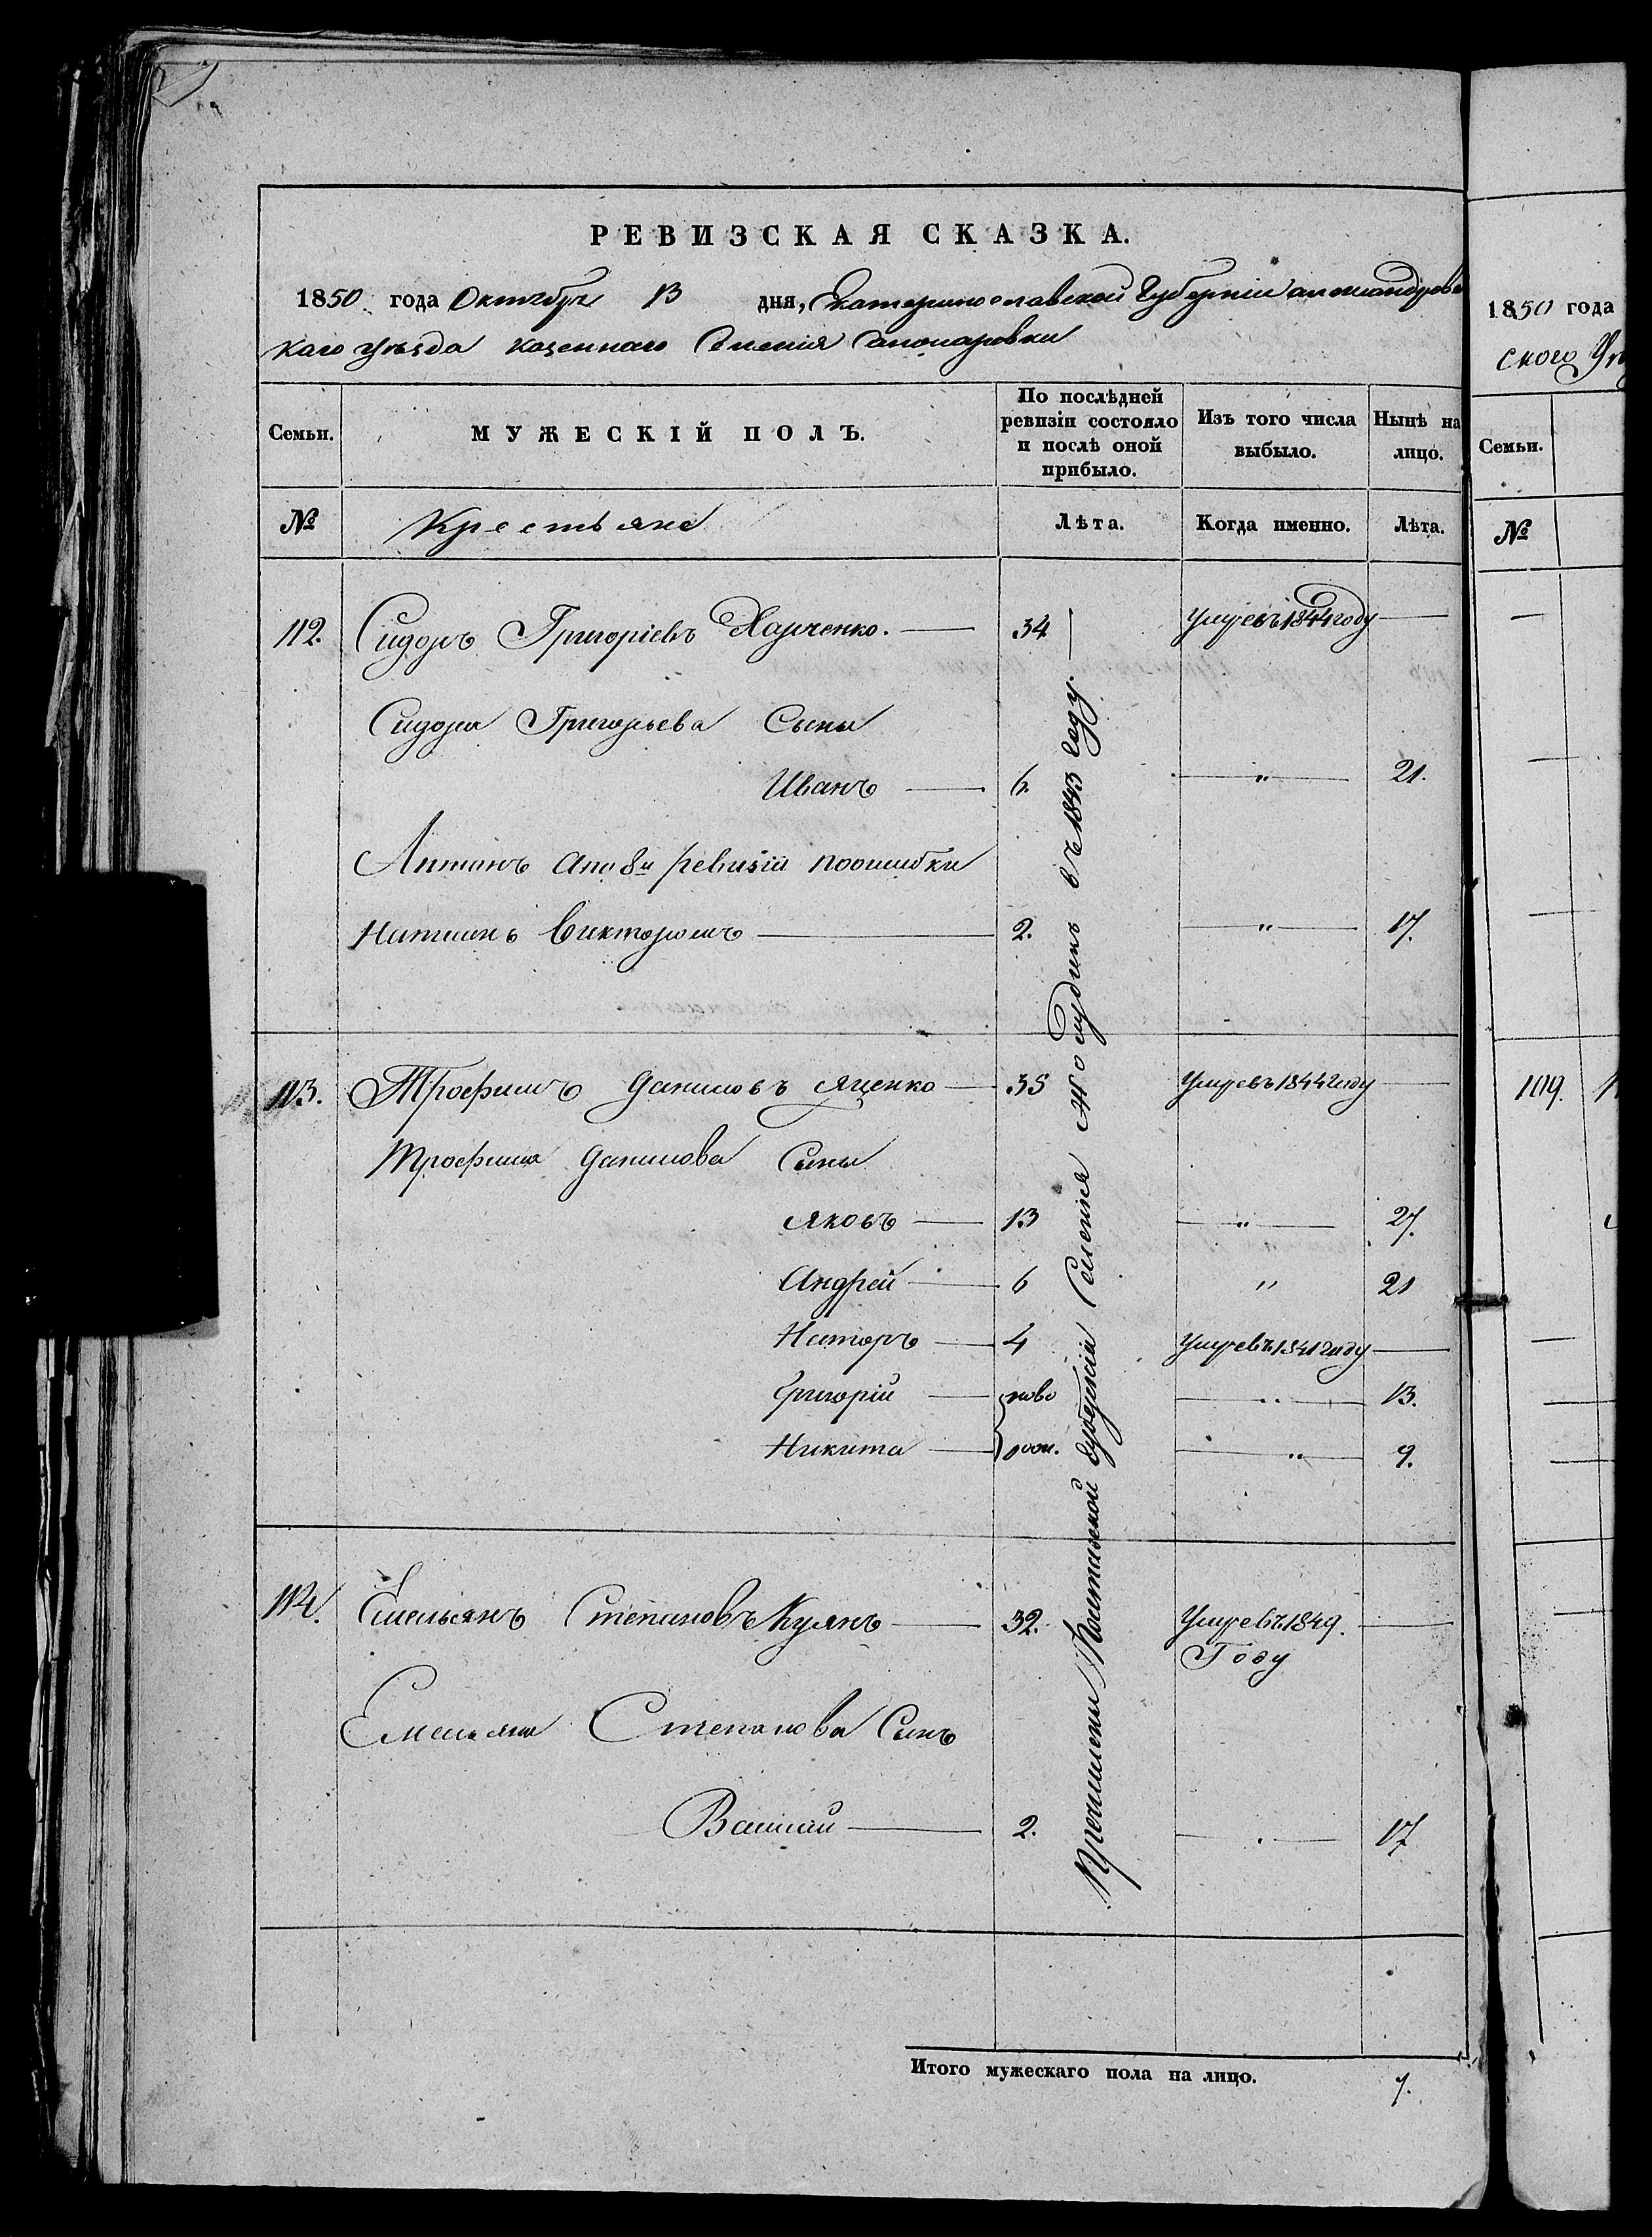 РЕВИЗСКАЯ СКАЗКА.
1850 года Октября 13 дня, Екатеринославской Губерніи александровс
каго уѣзда казеннаго Селенія
Семьи.
МУЖЕСКІЙ ПОЛЪ.
По послѣдней ревизіи состояло и послѣ оной прибыло.
Изъ того числа выбыло.
Нынѣ на лицо.
№
Крестьяне
Лѣта.
Когда именно.
Лѣта.
112. Сидоръ Григоріевъ Харченко. 34 умре въ 1844 году
Сидора Григорьева Сыны
Иванъ 6. " 21.
Антонъ апо 8й ревизіи поошибки
Написанъ Викторомъ 2. " 17.
113. Трофимъ Даниловъ Яценко 35 Умре въ 1844 году
Трофима Данилова Сыны
Яковъ 13 " 27.
Андрей 6 " 21
Несторъ 4 Умре въ 1841 году
Григорій ново " 13.
Никита рож. " 9.
114. Емельянъ Степановъ Кулякъ 32. Умре въ 1849.
Году
Емельяна Степанова Сынъ
Василій 2. " 17
Причислены Полтавской губерніи Селенія въ 1843 году.
Итого мужескаго пола на лицо. 7.
1850 года
ского Уѣз
Семьи.
№
109.